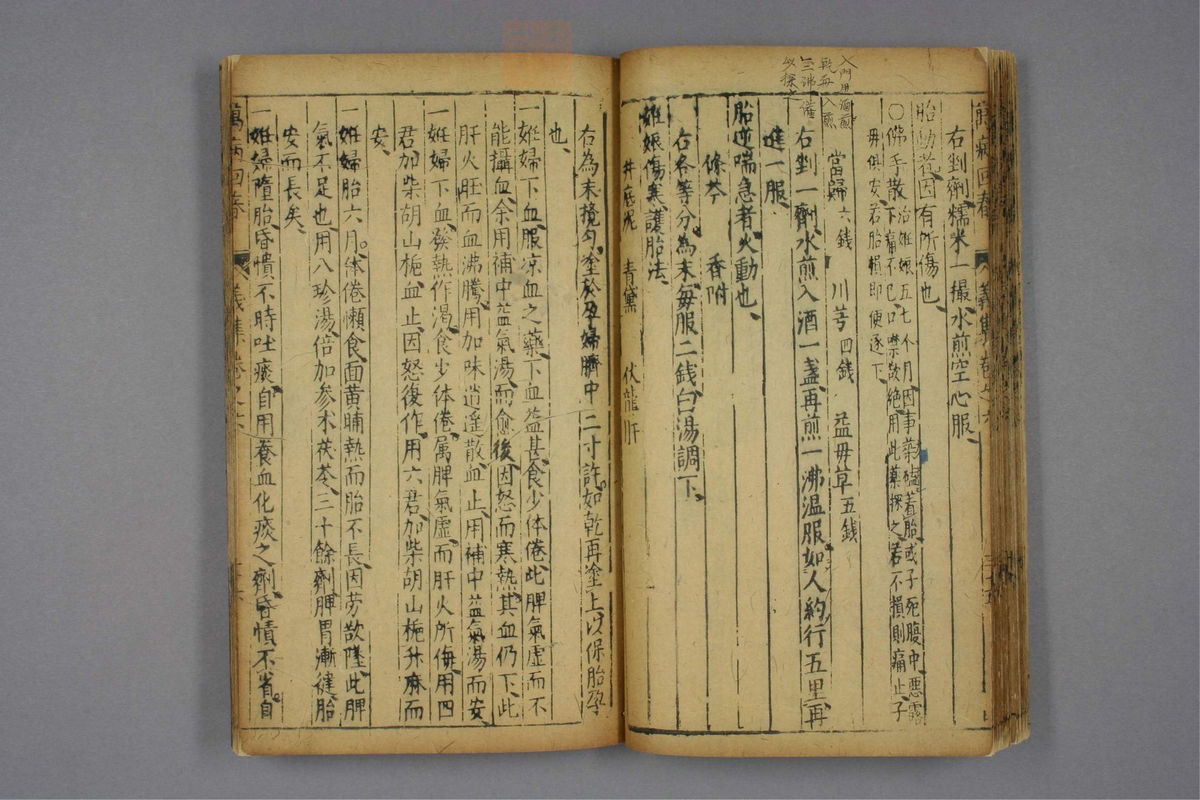 入門用酒煎
乾再入煎
三沸催
以探之
萬病回春 義集卷之六
右剉劑、糯米一撮、水煎空心服、
胎動者、因有所傷也、
○佛手散 治姙娠五七个月、因事築磕着胎、或子死腹中、惡露
下痛不已、口噤欲絶、用此藥探之、若不損則痛止、子
毋俱安、若胎損即便逐下、
當歸六錢 川芎四錢 益毋草五錢
右剉一劑、水煎入酒一盞、再煎一沸温服、如人約行五里再
進一服、
胎逆喘急者、火動也、
條芩 香附
右各等分、為末、毎服二錢、白湯調下、
姙娠傷寒護胎法、
井底泥 青黛 伏龍肝
右為末、攪匀、塗於孕婦臍中二寸許、如乾再塗上、以保胎孕
也、
一姙婦下血、服凉血之藥、下血益甚、食少体倦、此脾氣虚而不
能攝血、余用補中益氣湯、而愈、後因怒而寒熱、其血仍下、此
肝火旺而血沸騰、用加味逍遥散、血止、用補中益氣湯而安、
一姙婦下血、發熱作渴、食少体倦、属脾氣虚、而肝火所侮、用四
君加柴胡山梔、血止、因怒復作、用六君、加柴胡山梔升麻而
安、
一姙婦胎六月、体倦懶食、面黄晡熱而胎不長、因劳欲墜、此脾
氣不足也、用八珍湯、倍加参术茯苓、三十餘劑、脾胃漸健、胎
安而長矣、
一姙婦墮胎、昏憒不時吐痰、自用養血化痰之劑、昏憒不省、自
萬病回春 義集卷之六